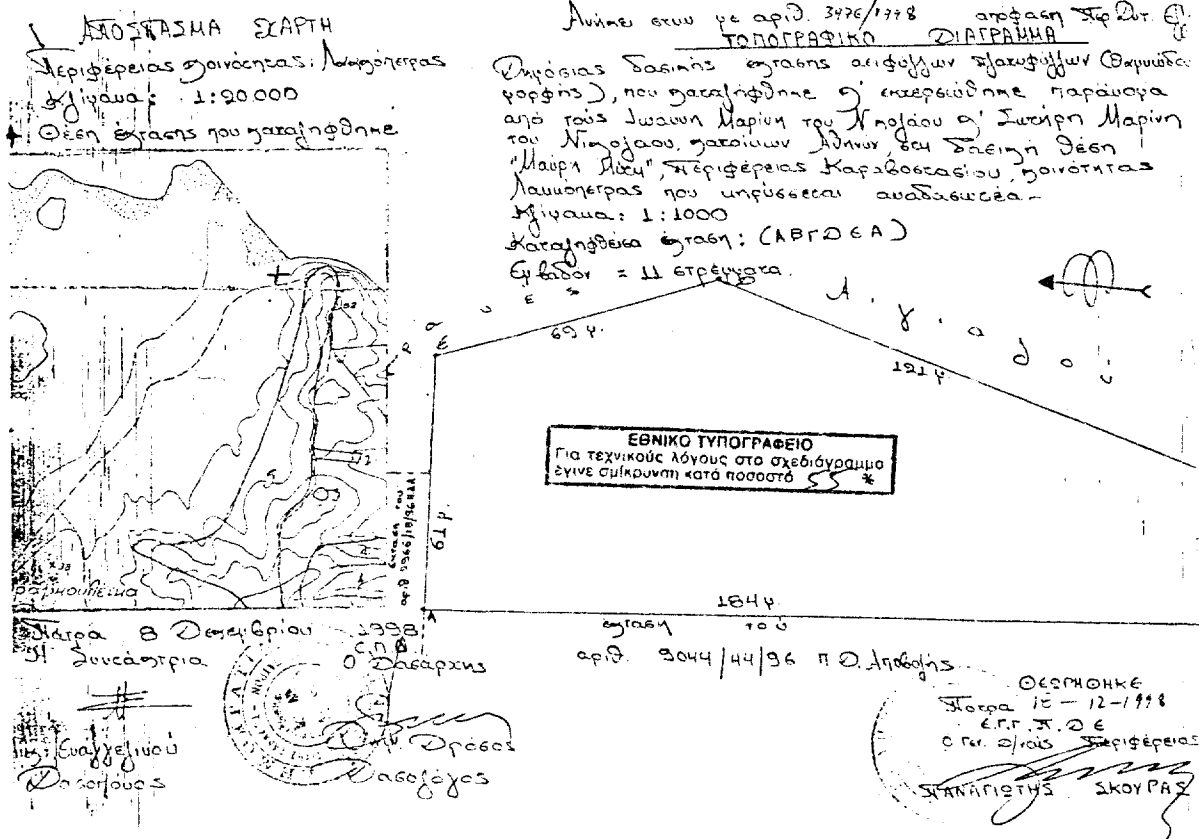 ΑΠΟΣΠΑΣΜΑ ΧΑΡΤΗ
Περιφέρειας κοινότητας: Λακκόπετρας
Κλίμακα: 1:20.000
+ Θέση έκτασης που καταλήφθηκε
Ανήκει στην με αριθ. 3976/1998 απόφαση
ΤΟΠΟΓΡΑΦΙΚΟ ΔΙΑΓΡΑΜΜΑ
Δημόσιας δασικής έκτασης αειφύλλων πλατυφύλλων (θαμνώδε
μορφής), που καταλήφθηκε κ' εκχερσώθηκε παράνομα
από τούς Ιωάννη Μαρίνη του Νικολάου κ' Σωτήρη Μαρίνη
του Νικολάου, κατοίκων Αθηνών, στη δασική θέση
"Μαύρη Μύτη", περιφέρειας Καραβοστασίου, κοινότητας
Λακκόπετρας που κηρύσσεται αναδασωτέα.-
Κλίμακα: 1:1000
Καταληφθείσα έκταση: (ΑΒΓΔΕΑ)
Εμβαδόν = 11 στρέμματα.
Δ
Ε
69 μ.
Αιγιαλού
121 μ
ΕΘΝΙΚΟ ΤΥΠΟΓΡΑΦΕΙΟ
Για τεχνικούς λόγους στο σχεδιάγραμμα
έγινε σμίκρυνση κατά ποσοστό 55 *
έκταση του
61 μ.
184 μ.
Α
έκταση του
αριθ. 9044/44/96 Π.Δ. Αποβολής
Πάτρα 8 Δεκεμβρίου 1998
Η Συντάκτρια
Ο Δασάρχης
Ευαγγελινού
Δασοπόνος
Δρόσος
Δασολόγος
ΘΕΩΡΗΘΗΚΕ
Πάτρα -12-1998
Ο Γεν. Δ/ντής Περιφέρειας
ΠΑΝΑΓΙΩΤΗΣ ΣΚΟΥΡΑΣ